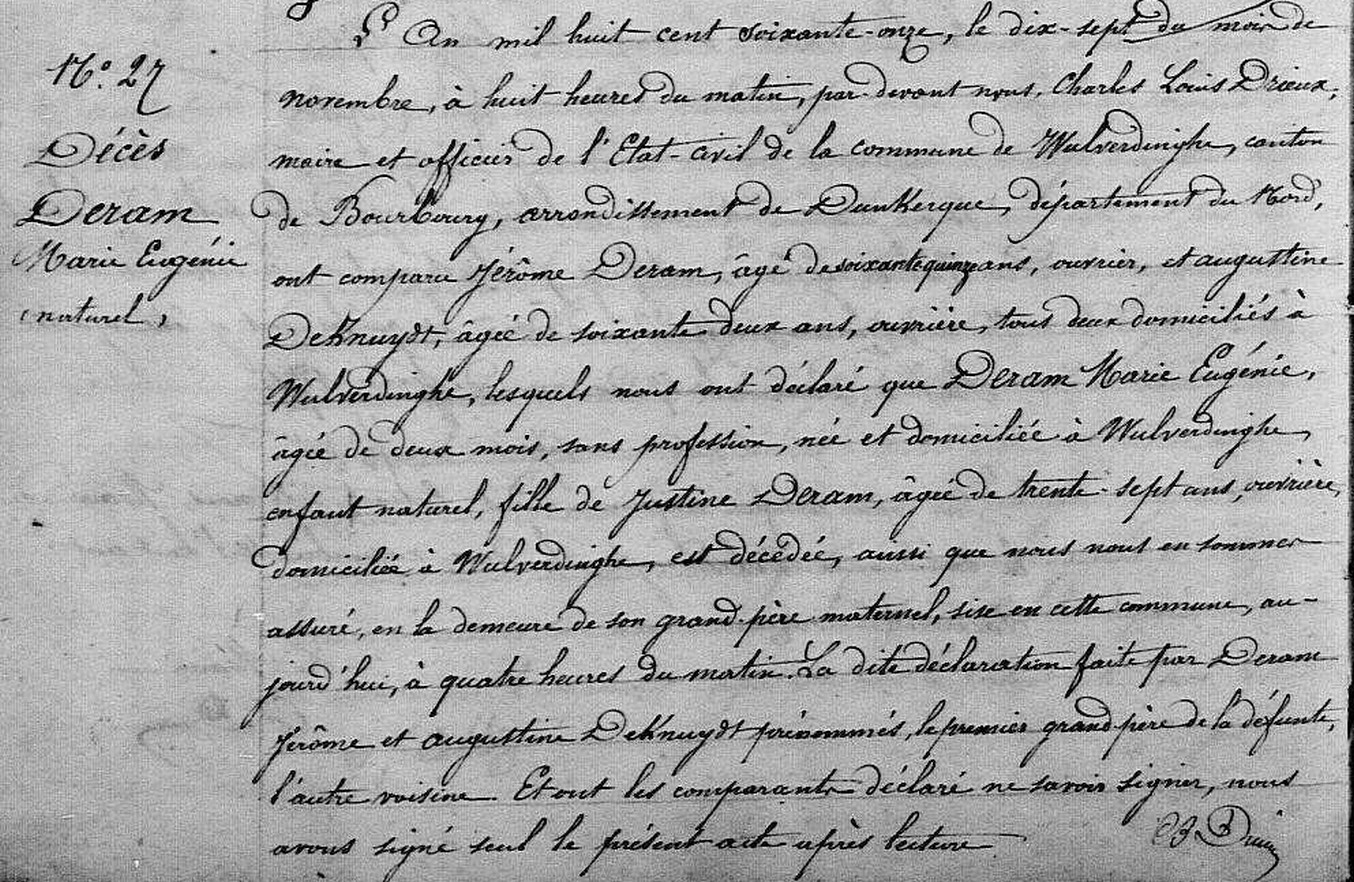 N.° 27
Décès
Deram
Marie Eugénie
(naturel)
L'An mil huit cent soixante-onze, le dix-sept du mois de
novembre, à huit heures du matin, par-devant nous, Charles Louis Drieux,
maire et officier de l'Etat-civil de la commune de Wulverdinghe, canton
de Bourbourg, arrondissement de Dunkerque, département du Nord,
ont comparu Jérôme Deram, âgé de soixante quinze ans, ouvrier, et augustine
DeKnuydt, âgée de soixante deux ans, ouvrière, tous deux domiciliés à
Wulverdinghe, lesquels nous ont déclaré que Deram Marie Eugénie,
âgée de deux mois, sans profession, née et domiciliée à Wulverdinghe,
enfant naturel, fille de Justine Deram, âgée de trente-sept ans, ouvrière,
domiciliée à Wulverdinghe, est décédée, aussi que nous nous en sommes
assuré, en la demeure de son grand-père maternel, sise en cette commune, au-
jourd'hui, à quatre heures du matin. La dite déclaration faite par Deram
Jérôme et augustine DeKnuydt prénommés, le premier grand-père de la défunte,
l'autre voisine. Et ont les comparants déclaré ne savoir signer, nous
avons signé seul le présent acte après lecture
Drieux